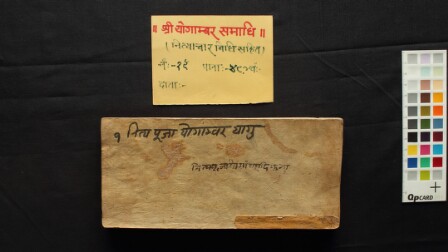 ॥ श्री योगाम्बर समाधि ॥
(नित्याचार विधि सहित)
नं:-२६ पाना:-४८
दाता:-
१ नित्य पूजा योगाम्बर यागु
QPCARD